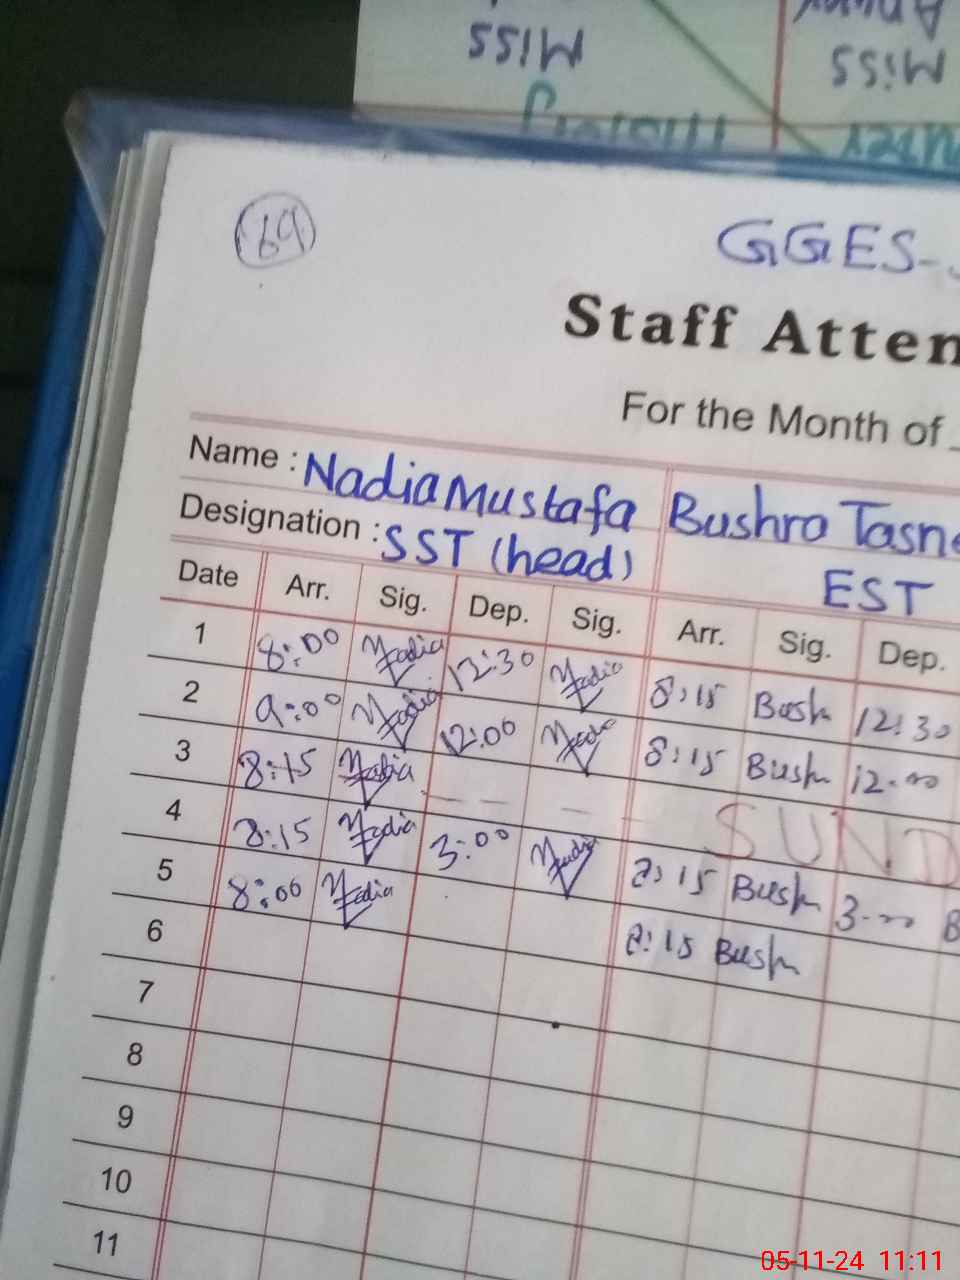 MISS
MISS
69
GGES-
Staff Atten
For the Month of
Name : Nadia Mustafa Bushra Tasne
Designation : SST (head) EST
Date Arr. Sig. Dep. Sig. Arr. Sig. Dep.
1 8:00 Nadia 12:30 Nadia 8:15 Bush 12:30
2 9:00 Nadia 12:00 Nadia 8:15 Bush 12:00
3 8:15 Nadia — — — — SUND
4 8:15 Nadia 3:00 Nadia 8:15 Bush 3:00 B
5 8:00 Nadia 8:15 Bush
6
7
8
9
10
11
05-11-24 11:11